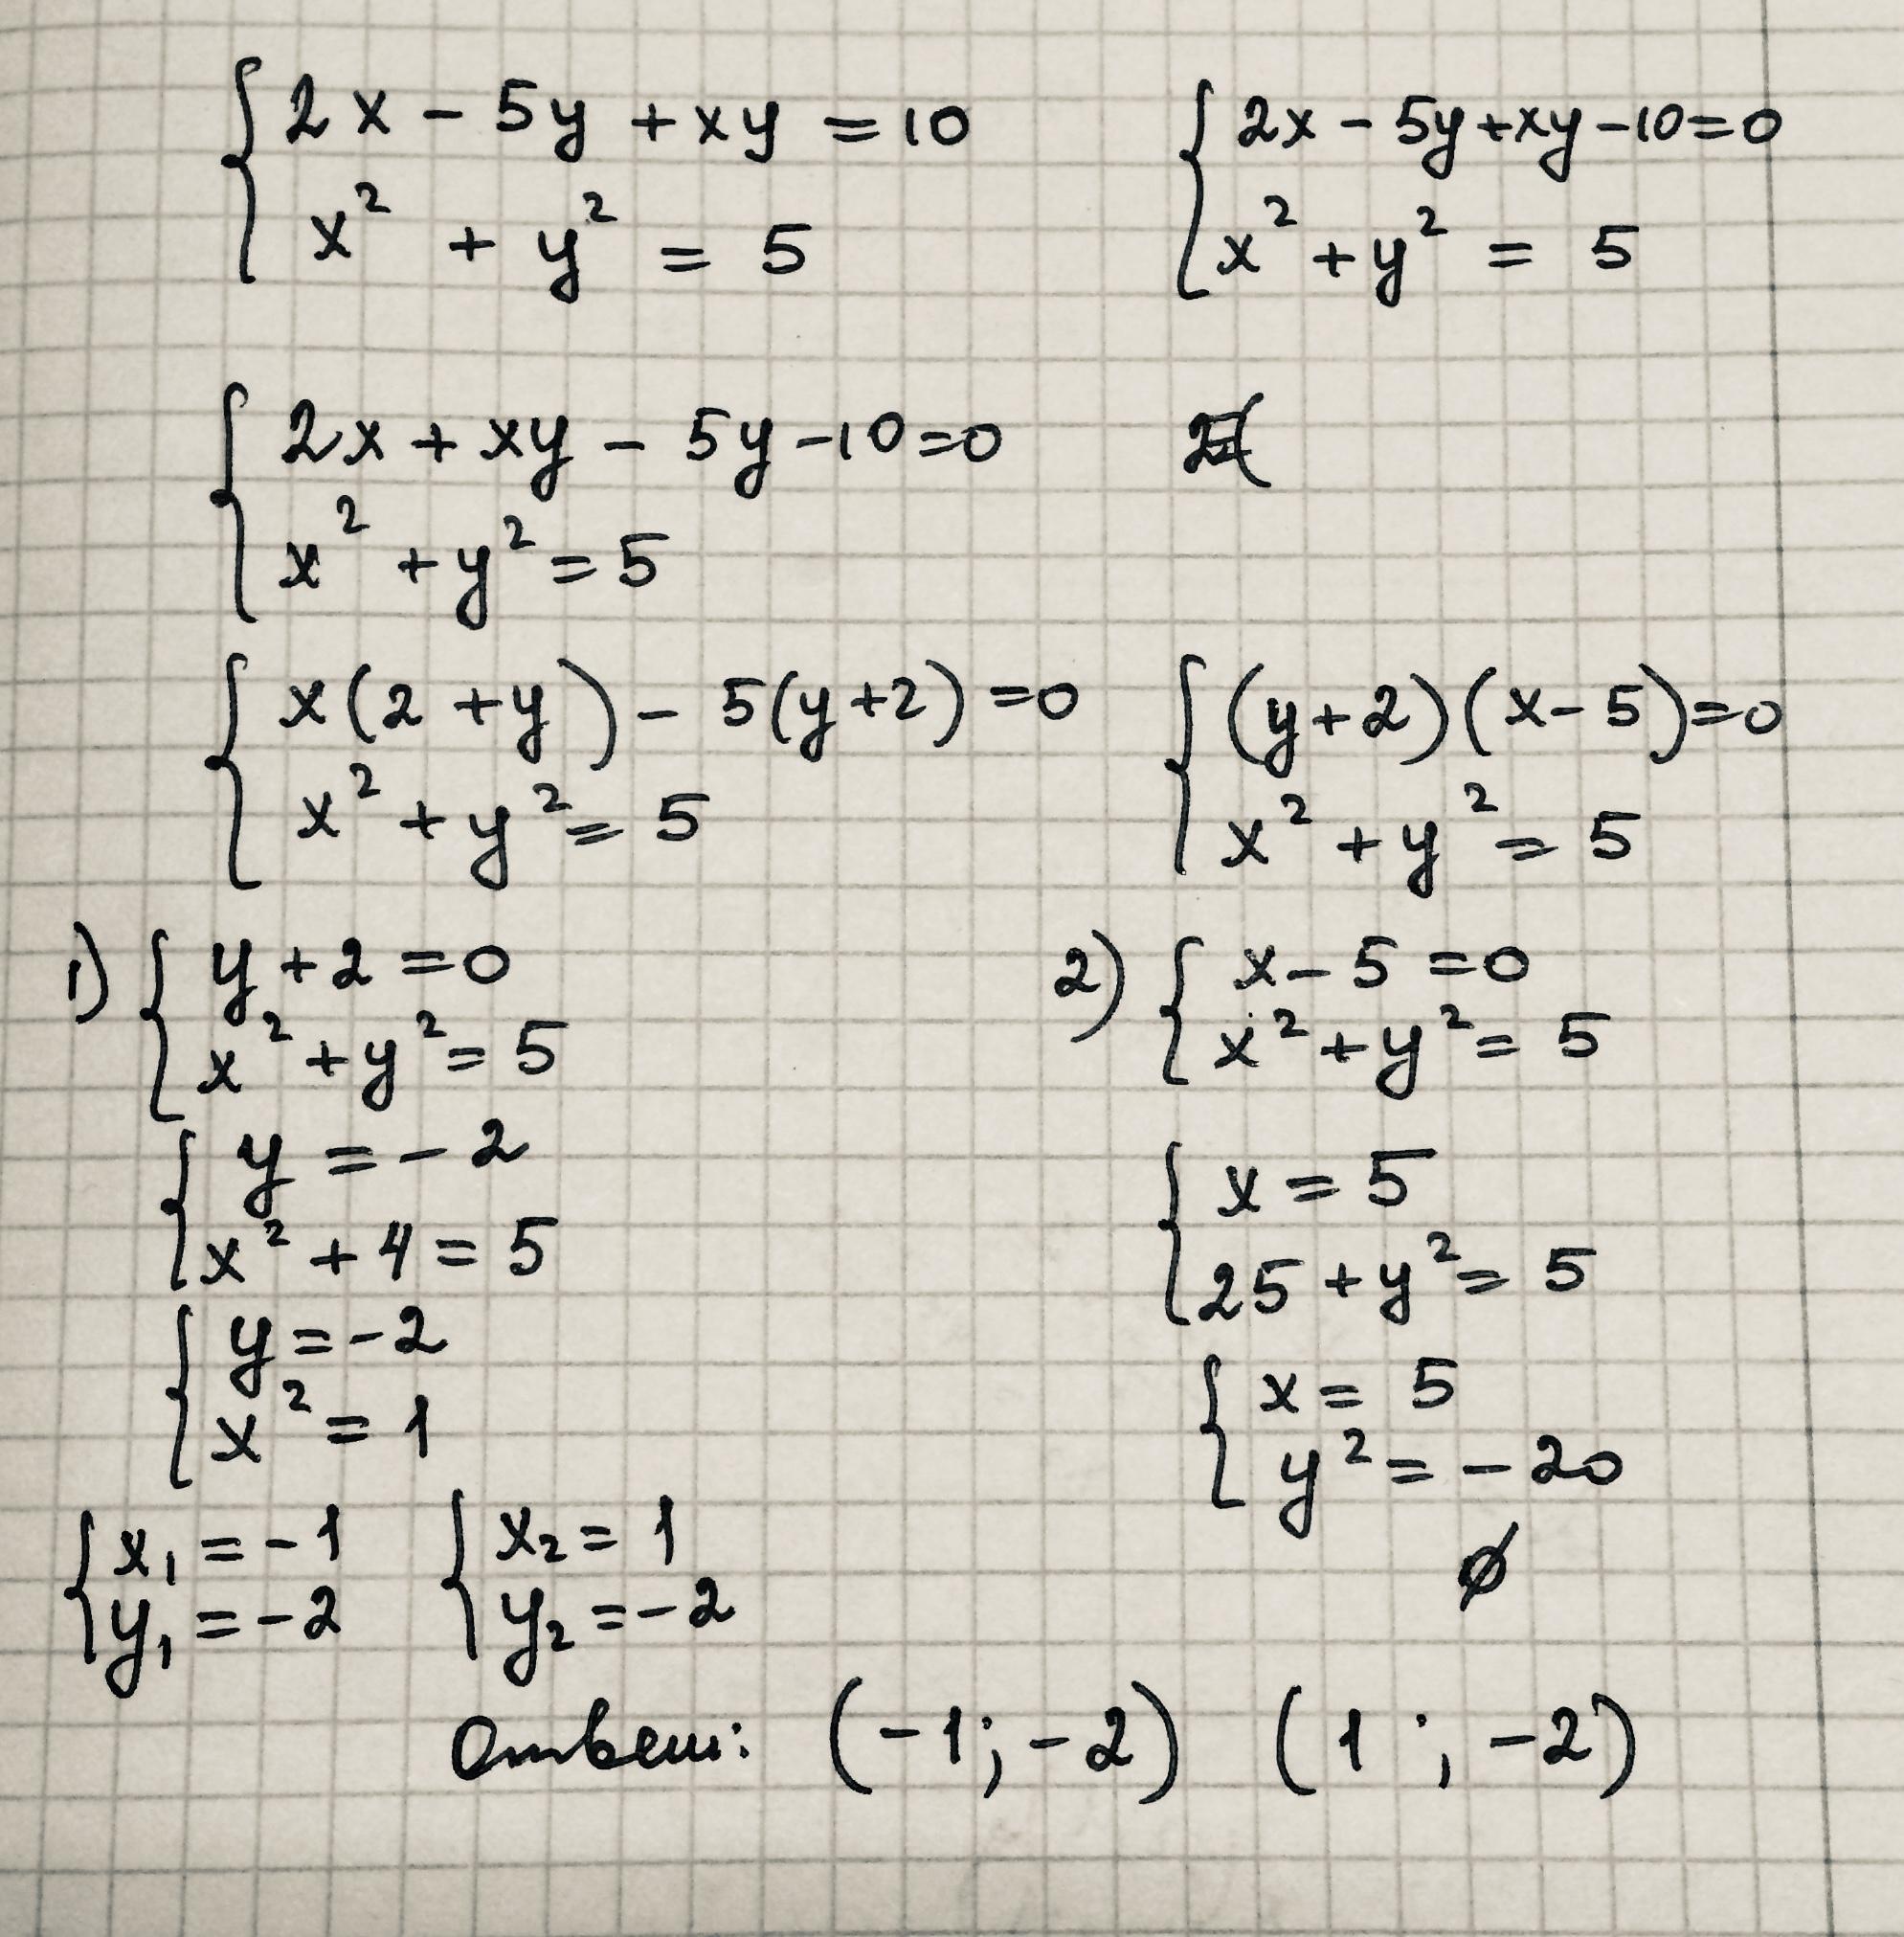 { 2x - 5y + xy = 10
x² + y² = 5
{ 2x - 5y + xy - 10 = 0
x² + y² = 5
{ 2x + xy - 5y - 10 = 0
x² + y² = 5
{ x(2 + y) - 5(y + 2) = 0
x² + y² = 5
{ (y + 2)(x - 5) = 0
x² + y² = 5
1) { y + 2 = 0
x² + y² = 5
{ y = -2
x² + 4 = 5
{ y = -2
x² = 1
{ x₁ = -1
y₁ = -2
{ x₂ = 1
y₂ = -2
2) { x - 5 = 0
x² + y² = 5
{ x = 5
25 + y² = 5
{ x = 5
y² = -20
∅
Ответ: (-1; -2) (1; -2)